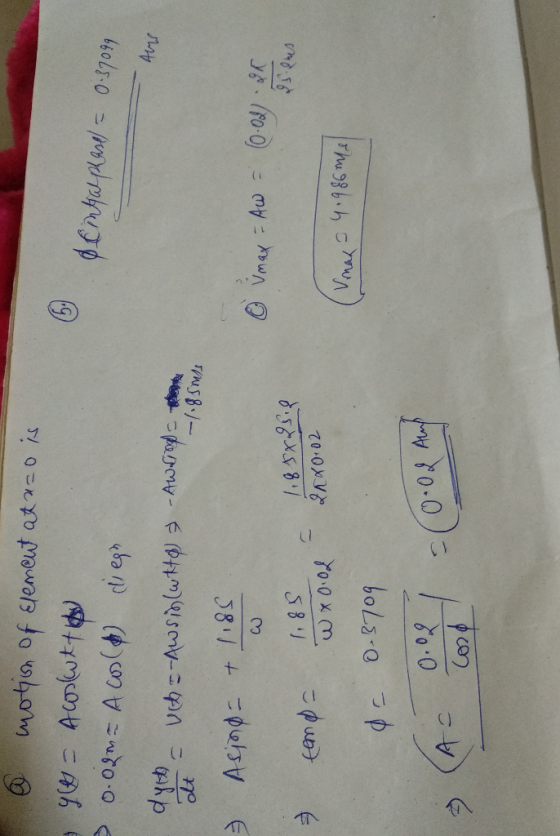 ⓐ motion of element at x=0 is
y(t) = A cos(ωt+φ)
⇒ 0.02m = A cos(φ)
dy(t)/dt = v(t) = -Aω sin(ωt+φ) ⇒ -Aω sinφ = -1.85 m/s
⇒ A sinφ = + 1.85/ω
⇒ tanφ = 1.85/(ω×0.02) = (1.85×25.2)/(2π×0.02)
φ = 0.3709
⇒ A = 0.02/cosφ = 0.02 Ans
ⓑ φ(initial phase) = 0.37099
Ans
ⓒ Vmax = Aω = (0.02) · 2π/25.2ms
Vmax = 4.986 m/s